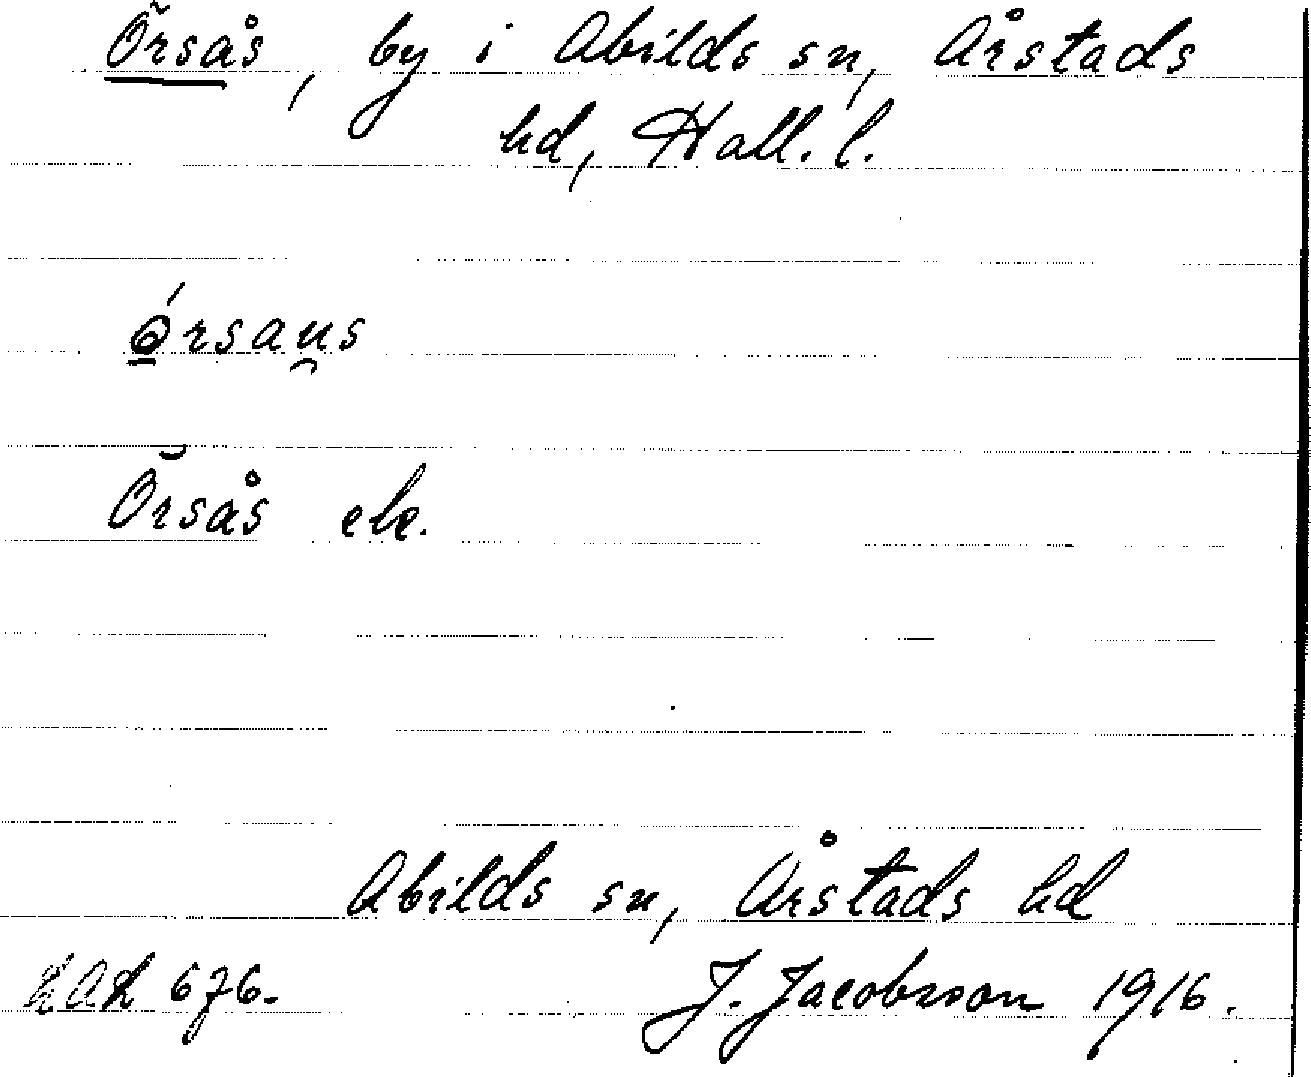 Örsås, by i Abilds sn, Årstads
hd, Hall. l.
ǿrsau̯s
Örsås
Abilds sn, Årstads hd
676.
J. Jacobsson 1916.